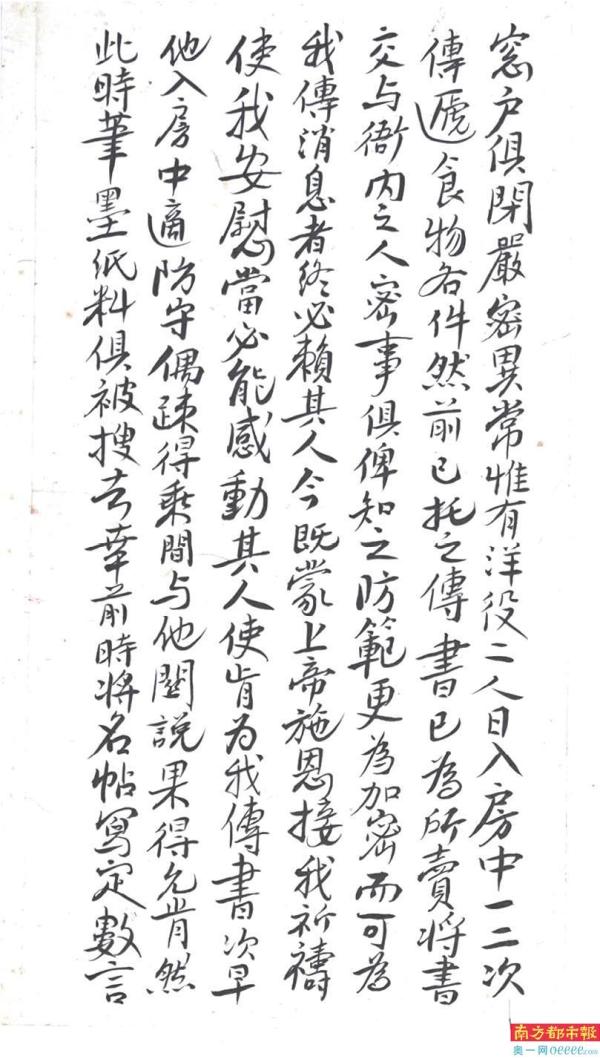 窓户俱閉嚴密異常惟有洋役二人日入房中一二次
傳遞食物各件然前已托之傳書已為所賣將書
交与衙内之人密事俱俾知之防範更為加密而可為
我傳消息者終必賴其人今既蒙上帝施恩接我祈禱
使我安慰當必能感動其人使肯为我傳書次早
他入房中適防守偶疎得乘間与他関說果得允肯然
此時筆墨紙料俱被搜去幸前時將名帖寫定數言
南方都市報
奥一网oeeee.com